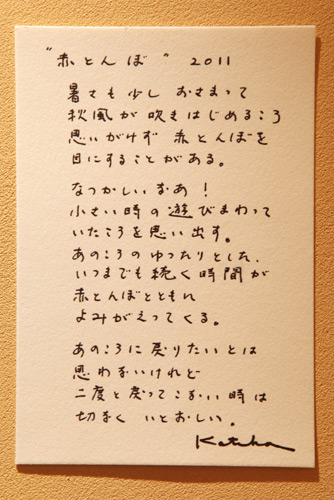 "赤とんぼ" 2011
暑さも少し おさまって
秋風が 吹きはじめるころ
思いがけず 赤とんぼを
目にすることがある。
なつかしいなあ！
小さい時の遊びまわって
いたころを思い出す。
あのころのゆったりとした、
いつまでも続く時間が
赤とんぼとともに
よみがえってくる。
あのころに戻りたいとは
思わないけれど
二度と戻ってこない時は
切なく いとおしい。